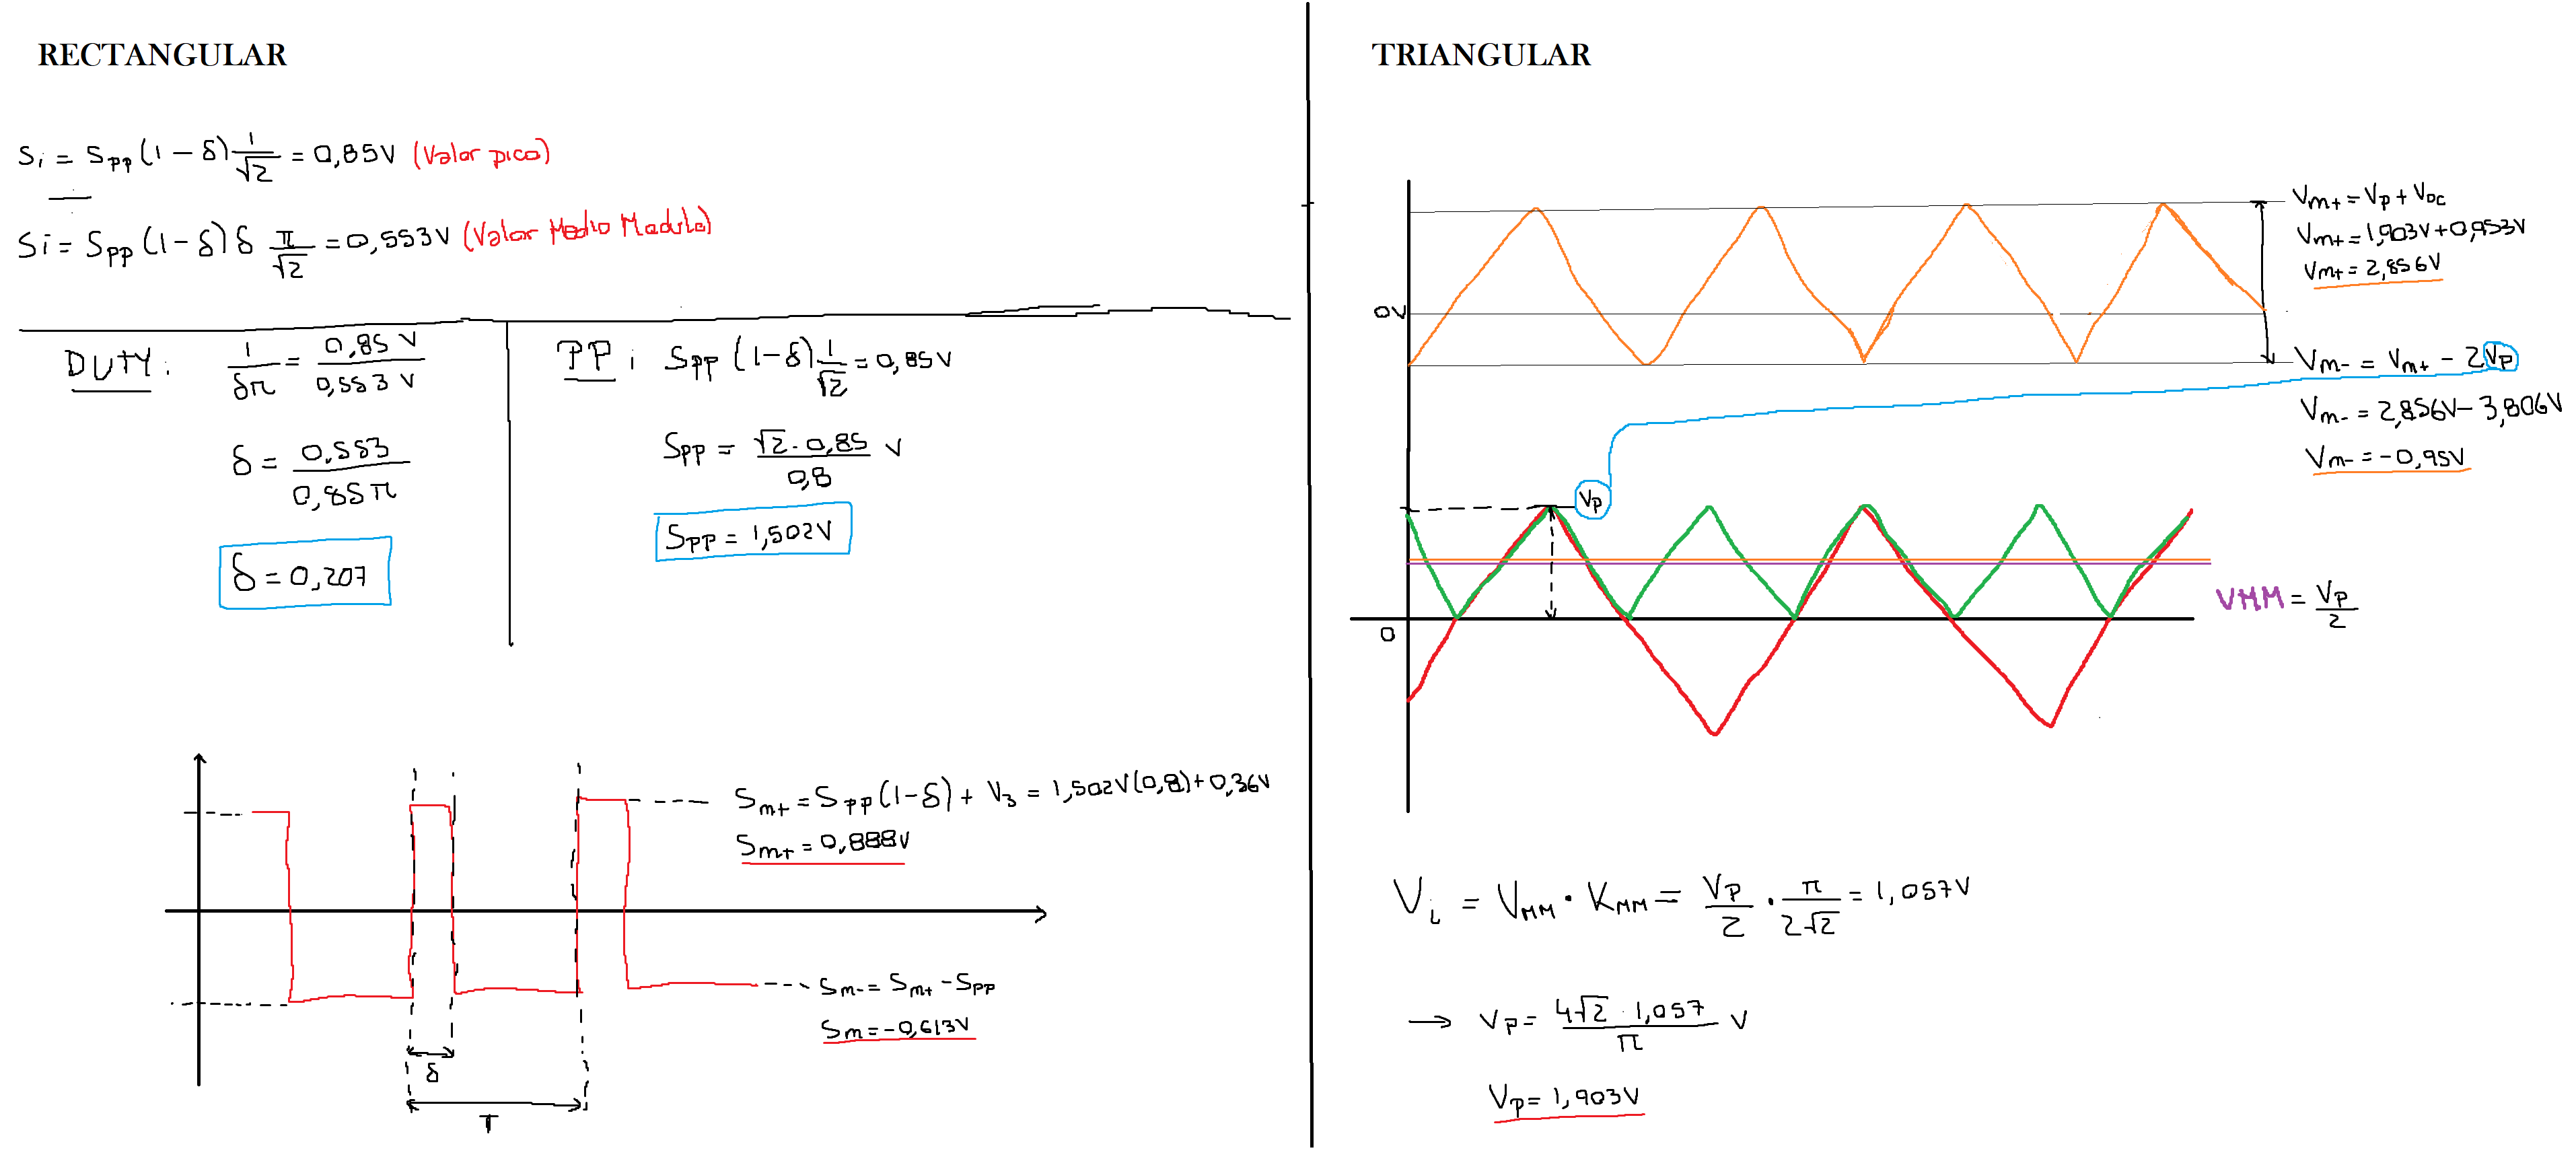 RECTANGULAR
Si = Spp (1 − δ) 1/√2 = 0,85V (Valor pico)
Si = Spp (1−δ) δ π/√2 = 0,553V (Valor Medio Modulo)
DUTY: 1/δπ = 0,85 V/0,553 V
δ = 0,553/0,85 π
δ = 0,207
PP: Spp (1−δ) 1/√2 = 0,85V
Spp = √2 · 0,85/0,8 V
Spp = 1,502V
Sm+ = Spp (1−δ) + V3 = 1,502V(0,8)+0,36V
Sm+ = 0,888V
Sm- = Sm+ − Spp
Sm = −0,613V
δ
T
TRIANGULAR
Vm+ = Vp + VDC
Vm+ = 1,903V + 0,953V
Vm+ = 2,856V
0V
Vm- = Vm+ − 2Vp
Vm- = 2,856V − 3,806V
Vm- = −0,95V
Vp
0
VMM = Vp/2
Vi = VMM · KMM = Vp/2 · π/2√2 = 1,057V
→ Vp = 4√2 · 1,057/π V
Vp = 1,903V